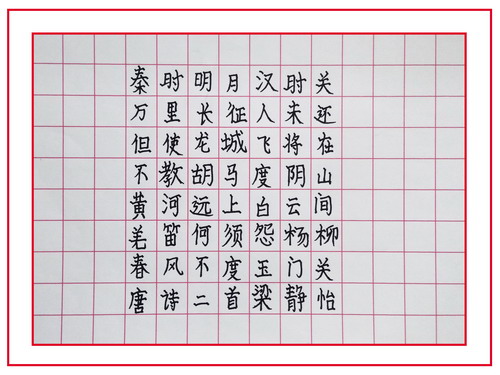 秦时明月汉时关
万里长征人未还
但使龙城飞将在
不教胡马度阴山
黄河远上白云间
羌笛何须怨杨柳
春风不度玉门关
唐诗二首梁静怡